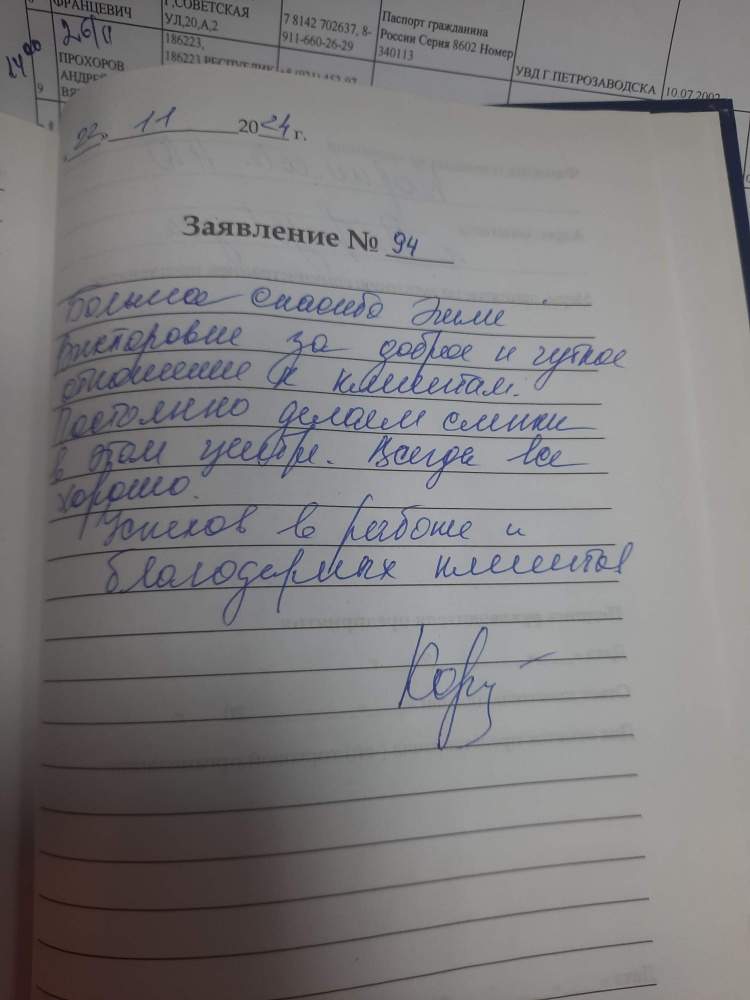 ФРАНЦЕВИЧ
Г,СОВЕТСКАЯ
УЛ,20,А,2
7 8142 702637, 8-
911-660-26-29
Паспорт гражданина
России Серия 8602 Номер
340113
УВД Г ПЕТРОЗАВОДСКА
10.07.2002
14 00
26/11
9
ПРОХОРОВ
АНДРЕ
186223,
22. 11 2024 г.
Заявление № 94
Большое спасибо Элле
Викторовне за доброе и чуткое
отношение к клиентам.
Постоянно делаем слепки
в этом центре. Всегда все
хорошо.
Успехов в работе и
благодарных клиентов